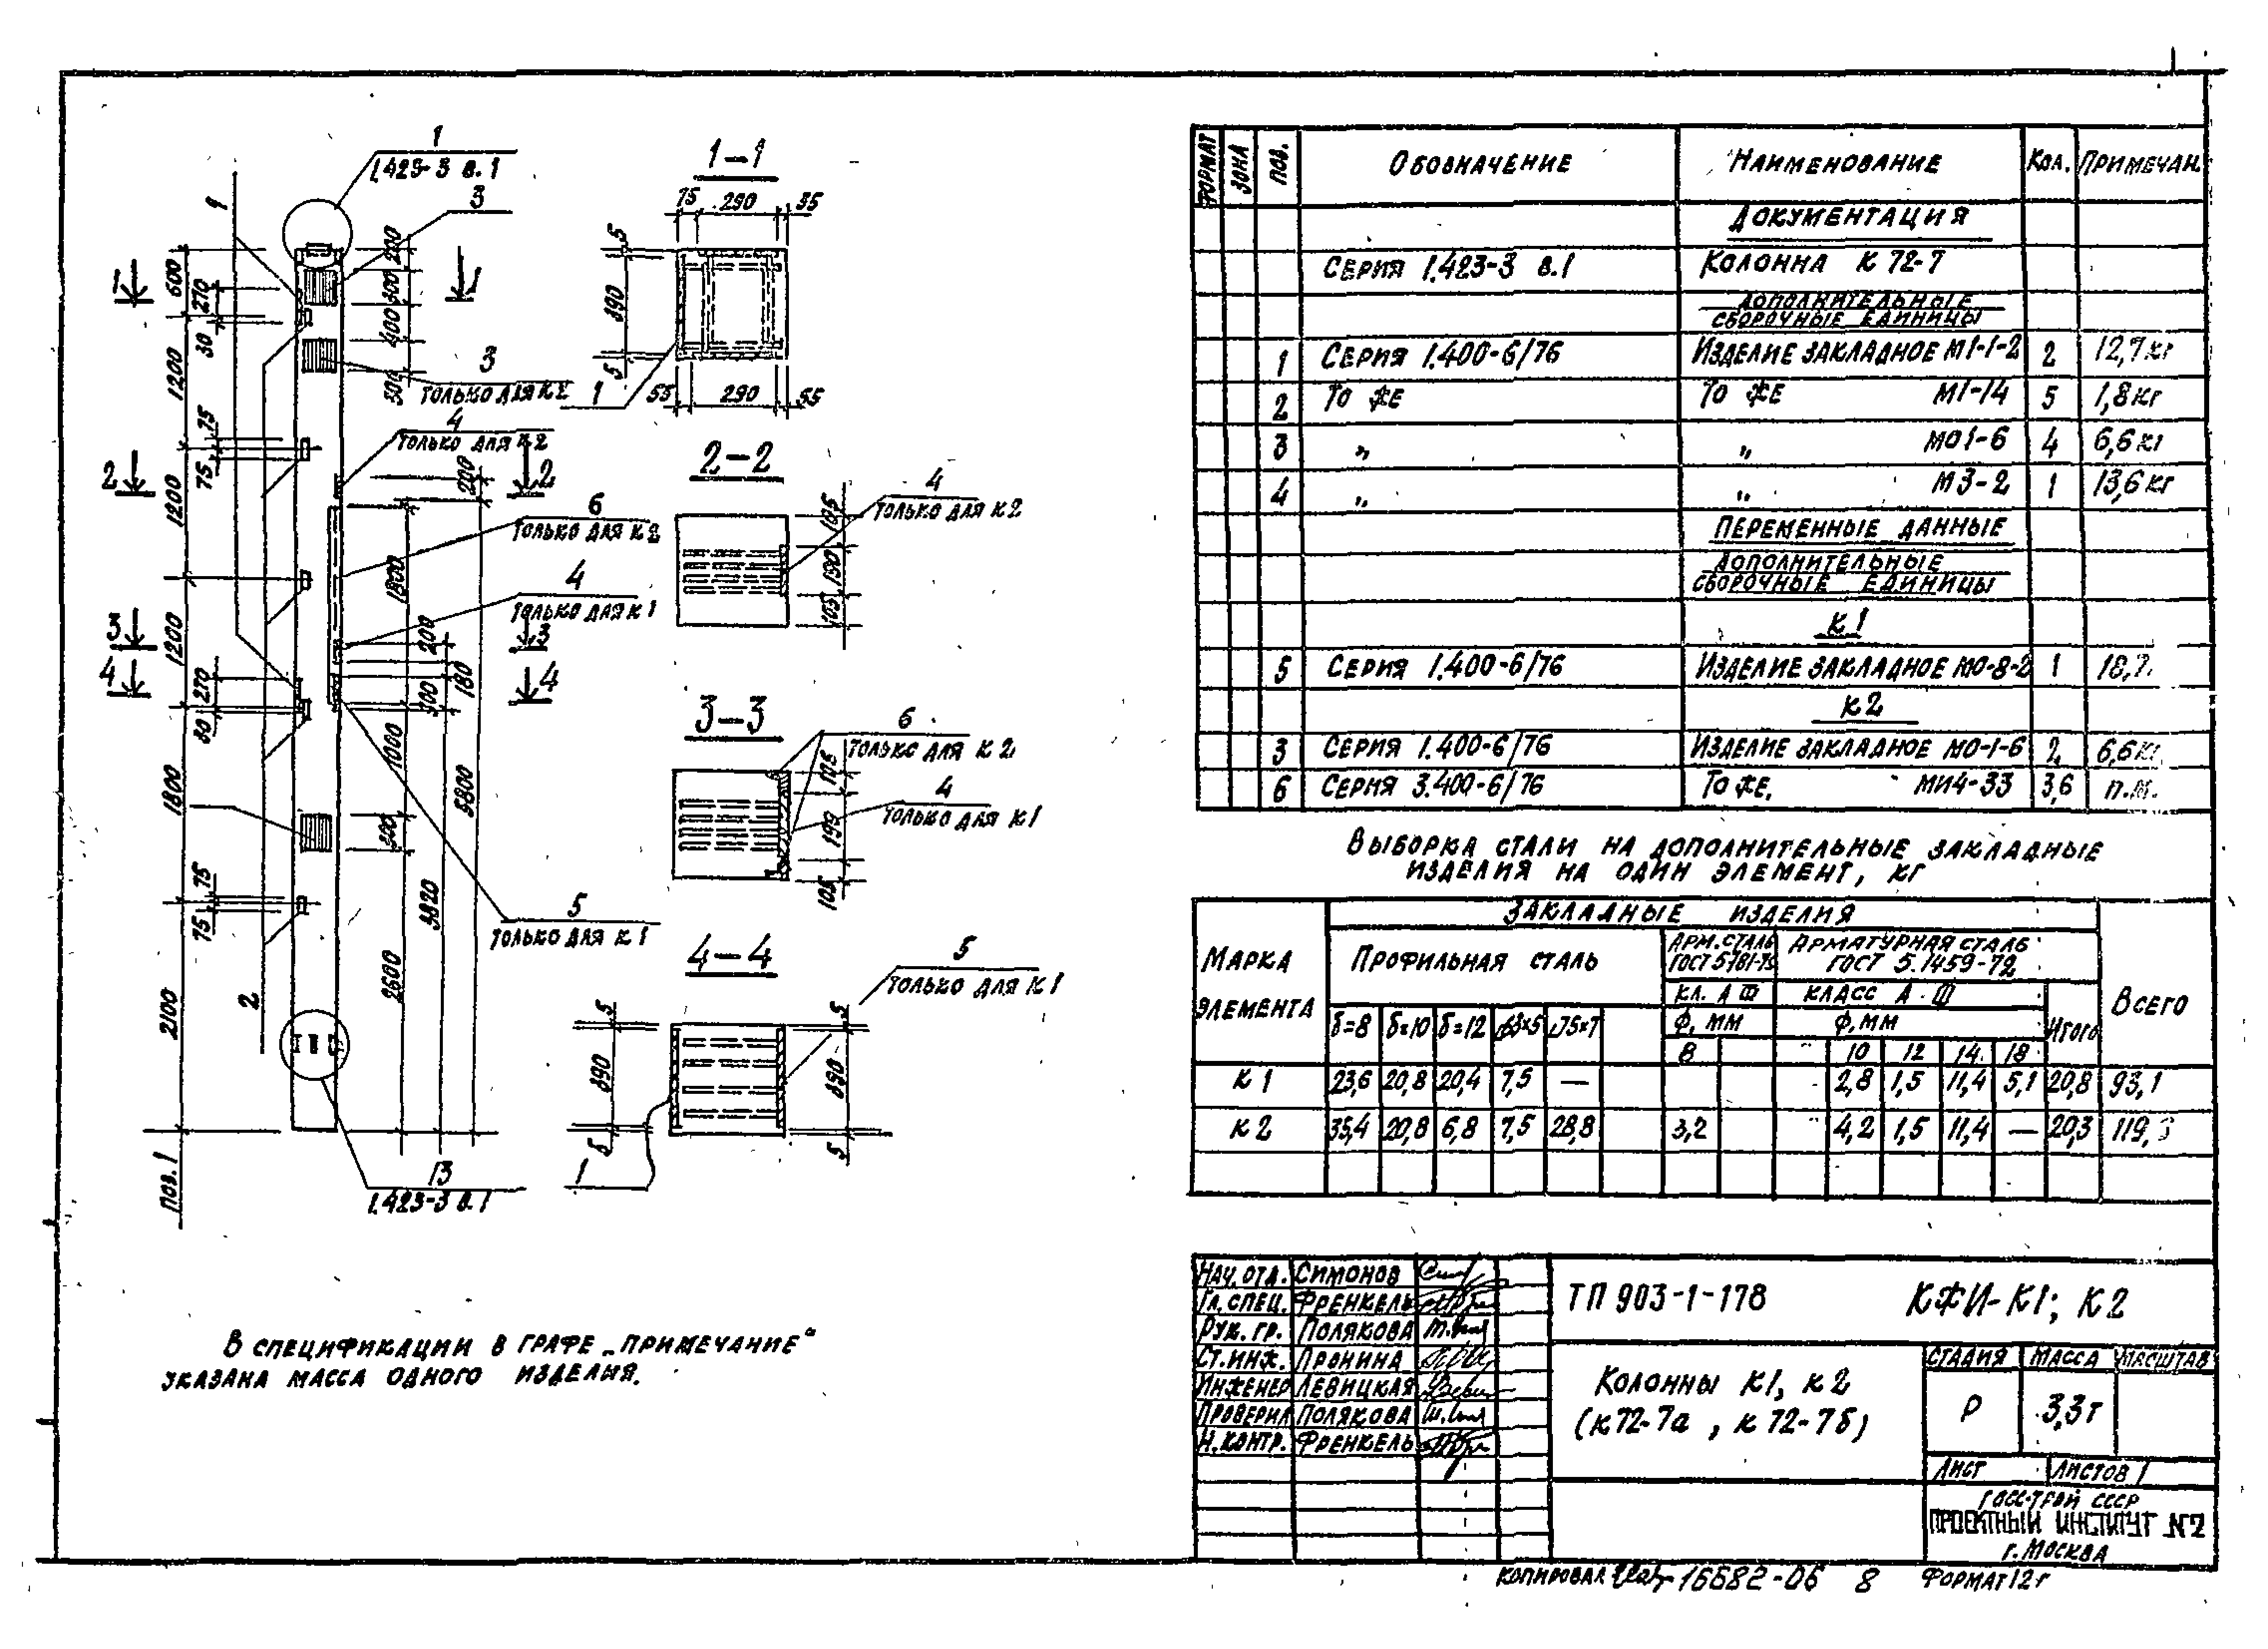 1
1.423-3 в.1
3
1
1
600
270
30
200
300
400
300
3
только для к2
4
только для к2
1200
75
75
2
2
200
1200
6
только для к2
4
только для к1
1800
200
180
300
3
3
4
4
1200
270
30
1000
1800
300
5800
3820
2600
5
только для к1
75
75
2
2100
13
1.423-3 в.1
пов.1
1-1
75 290 35
5
390
5
55 290 55
1
2-2
4
только для к2
105
190
105
3-3
6
только для к2
4
только для к1
105
199
105
4-4
5
только для к1
5
390
5
5
390
5
1
В спецификации в графе „Примечание“
указана масса одного изделия.
Формат Зона Поз. Обозначение Наименование Кол. Примечан.
Документация
Серия 1.423-3 в.1 Колонна К 72-7
Дополнительные
сборочные единицы
1 Серия 1.400-6/76 Изделие закладное М1-1-2 2 12,7 кг
2 То же То же М1-14 5 1,8 кг
3 „ „ М01-6 4 6,6 кг
4 „ „ М3-2 1 13,6 кг
Переменные данные
Дополнительные
сборочные единицы
К1
5 Серия 1.400-6/76 Изделие закладное М0-8-2 1 18,7
К2
3 Серия 1.400-6/76 Изделие закладное М0-1-6 2 6,6 кг
6 Серия 3.400-6/76 То же. МИ4-33 3,6 п.м.
Выборка стали на дополнительные закладные
изделия на один элемент, кг
Марка элемента Закладные изделия Всего
Профильная сталь Арм. сталь ГОСТ 5781-75 Арматурная сталь ГОСТ 5.1459-72
Кл. А III Класс А-III
δ=8 δ=10 δ=12 ∟63×5 ∟75×7 ф, мм ф, мм Итого
8 10 12 14 18
К1 23,6 20,8 20,4 7,5 — 2,8 1,5 11,4 5,1 20,8 93,1
К2 35,4 20,8 6,8 7,5 28,8 3,2 4,2 1,5 11,4 — 20,3 119,
Нач. отд. Симонов
Гл. спец. Френкель
Рук. гр. Полякова
Ст. инж. Пронина
Инженер Левицкая
Проверил Полякова
Н. контр. Френкель
ТП 903-1-178 КЖИ-К1; К2
Колонны К1, К2
(К72-7а, К 72-7б)
Стадия Масса Масштаб
Р 3,3т
Лист Листов 1
Госстрой СССР
Проектный институт №2
г. Москва
Копировал 16682-06 8 Формат 12г